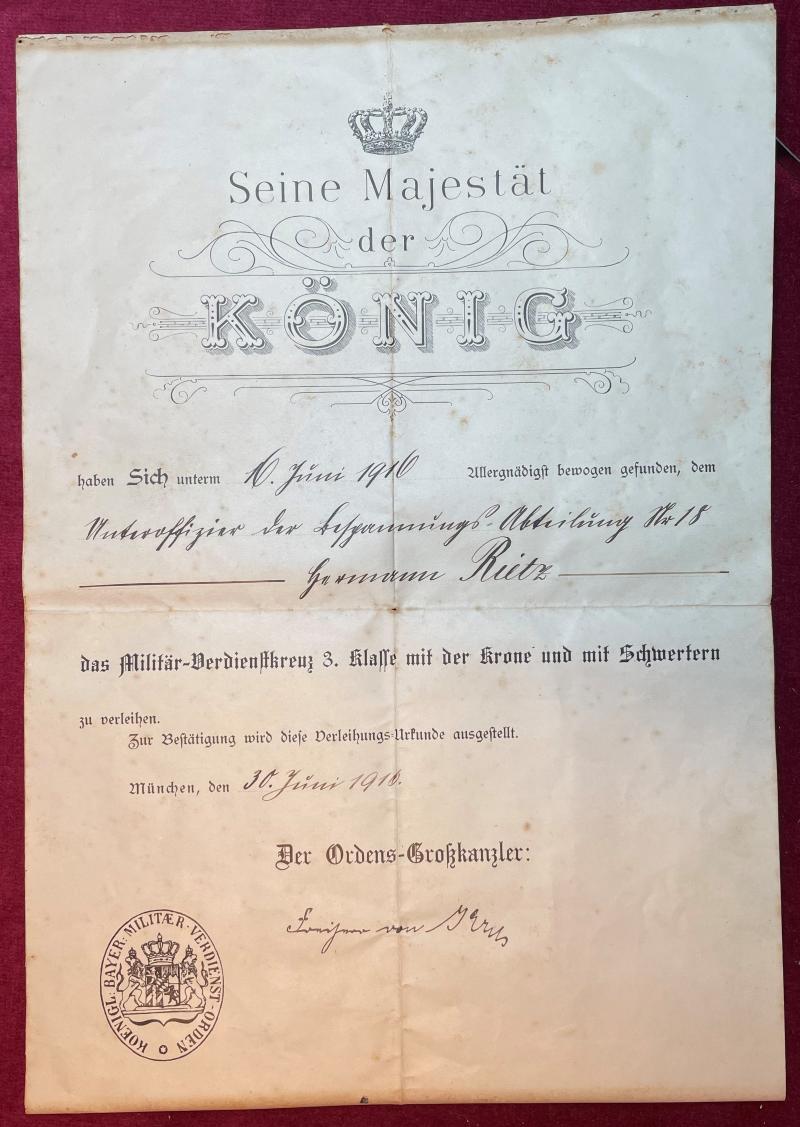 Seine Majestät
der
KÖNIG
haben Sich unterm 16. Juni 1916 Allergnädigst bewogen gefunden, dem
Unteroffizier der Bespannungs-Abteilung Nr 18
Hermann Rietz
das Militär-Verdienstkreuz 3. Klasse mit der Krone und mit Schwertern
zu verleihen.
Zur Bestätigung wird diese Verleihungs-Urkunde ausgestellt.
München, den 30. Juni 1916.
Der Ordens-Großkanzler:
Freiherr von
KOENIGL: BAYER: MILITÆR-VERDIENST-ORDEN